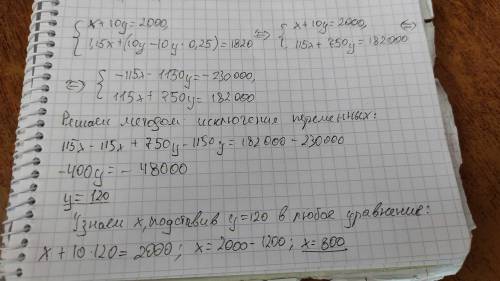 { x+10y=2000, ⇔ { x+10y=2000, ⇔
1,15x+(10y-10y·0,25)=1820 115x+750y=182000
⇔ { -115x-1150y=-230000,
115x+750y=182000
Решаем методом исключения переменных:
115x-115x+750y-1150y=182000-230000
-400y=-48000
y=120
Узнаем x, подставив y=120 в любое уравнение:
x+10·120=2000; x=2000-1200; x=800